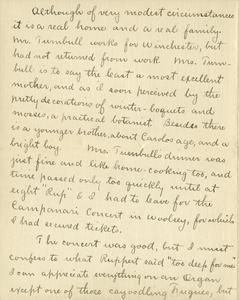 Although of very modest circumstances
it is a real home and a real family.
Mr. Turnbull works for Winchester, but
had not returned from work. Mrs. Turn-
bull is to say the least a most excellent
mother, and as I soon perceived by the
pretty decorations of winter-boquets and
mosses, a practical botanist. Besides there
is a younger brother, about Carolos age, and a
bright boy. Mrs. Turnbulls dinner was
just fine and like home-cooking too, and
time passed only too quickly until at
eight "Rup" & I had to leave for the
Campanari Concert in Woolsey, for which
I had secured tickets.
The concert was good, but I must
confess to what Ruppert said "too deep for me"
I can appreciate everything on an Organ
except one of those fugues, but